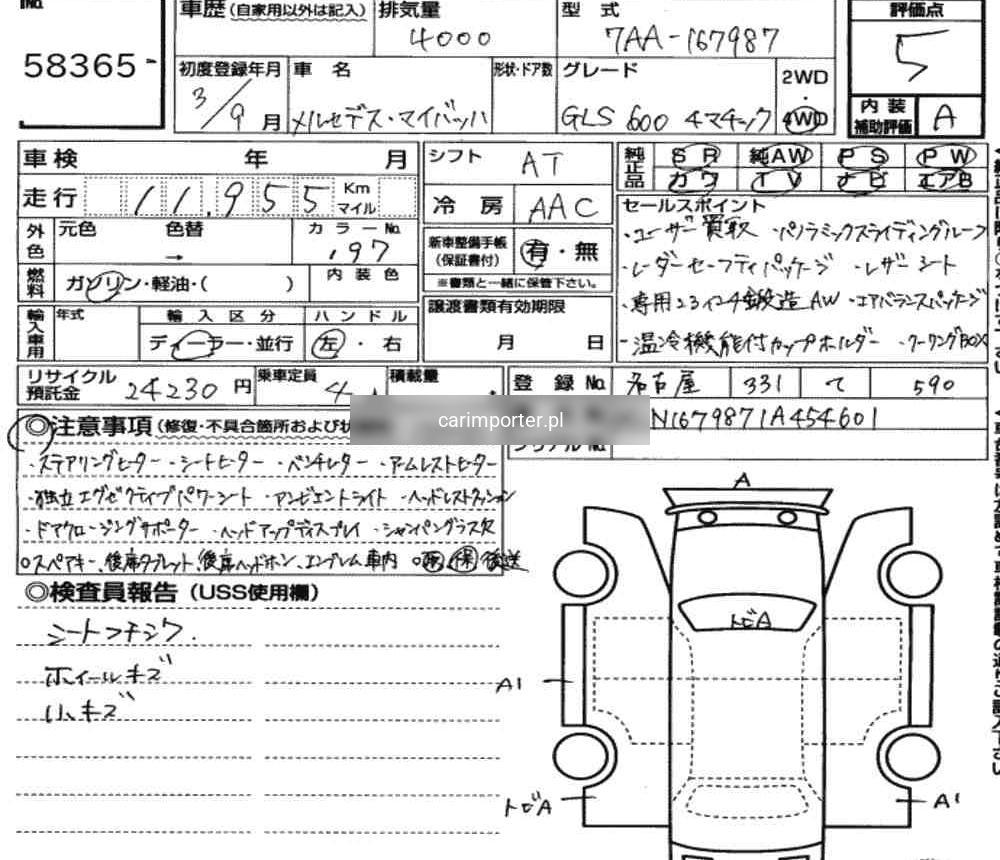 No.
58365
車歴（自家用以外は記入） 排気量 4000
型式 7AA-167987
評価点 5
初度登録年月 3/9月
車名 メルセデス・マイバッハ
形状・ドア数
グレード GLS 600 4マチック
2WD・4WD
内装補助評価 A
車検 年 月
シフト AT
純正品 SR 純AW PS PW
カワ TV ナビ エアB
走行 11,955 Km マイル
冷房 AAC
セールスポイント
・ユーザー買取 ・パノラミックスライディングルーフ
・レーダーセーフティパッケージ ・レザーシート
・専用23インチ鍛造AW ・エアバランスパッケージ
・温冷機能付カップホルダー ・クーリングBOX
外色 元色 色替 →
カラーNo. 197
新車整備手帳（保証書付） 有・無
※書類と一緒に保管下さい。
燃料 ガソリン・軽油・（ ）
内装色
譲渡書類有効期限
月 日
輸入車用 年式 輸入区分 ハンドル
ディーラー・並行 左・右
リサイクル預託金 24230円
乗車定員 4人
積載量
登録No. 名古屋 331 て 590
N1679871A454601
シリアルNo.
carimporter.pl
◎注意事項（修復・不具合箇所および状
・ステアリングヒーター ・シートヒーター ・ベンチレーター ・アームレストヒーター
・独立エグゼクティブパワーシート ・アンビエントライト ・ヘッドレストクッション
・ドアクロージングサポーター ・ヘッドアップディスプレイ ・シャンパングラス欠
○スペアキー、後席タブレット、後席ヘッドホン、エンブレム車内 ○取保後送
◎検査員報告（USS使用欄）
シートフチシワ.
ホイールキズ
小キズ
A
トビA
A1
トビA
A1